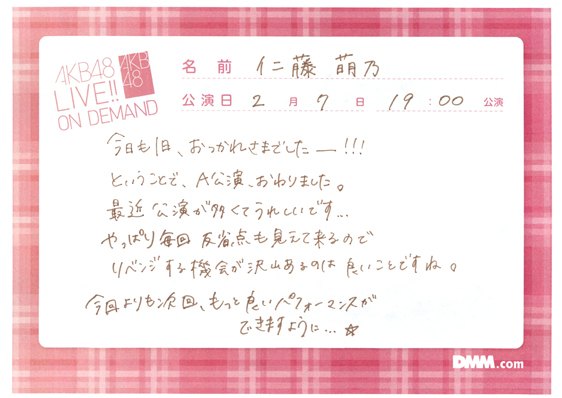 AKB48
LIVE!!
ON DEMAND
AKB
48
名前 仁藤 萌乃
公演日 2月 7日 19:00 公演
今日も1日、おつかれさまでしたー!!!
ということで、A公演、おわりました。
最近 公演が多くてうれしいです...
やっぱり毎回 反省点も見えて来るので
リベンジする機会が沢山あるのは良いことですね。
今回よりも次回、もっと良いパフォーマンスが
できますように...☆
DMM.com